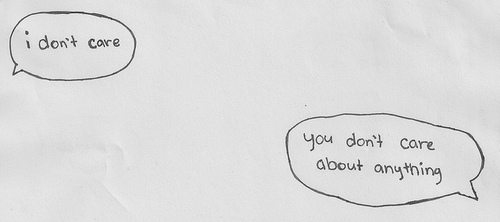 i don't care
you don't care
about anything